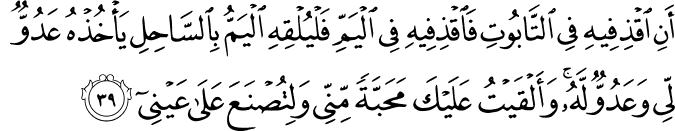 أَنِ ٱقْذِفِيهِ فِي ٱلتَّابُوتِ فَٱقْذِفِيهِ فِي ٱلْيَمِّ فَلْيُلْقِهِ ٱلْيَمُّ بِٱلسَّاحِلِ يَأْخُذْهُ عَدُوٌّ
لِّي وَعَدُوٌّ لَّهُۥۚ وَأَلْقَيْتُ عَلَيْكَ مَحَبَّةً مِّنِّي وَلِتُصْنَعَ عَلَىٰ عَيْنِيٓ ٣٩